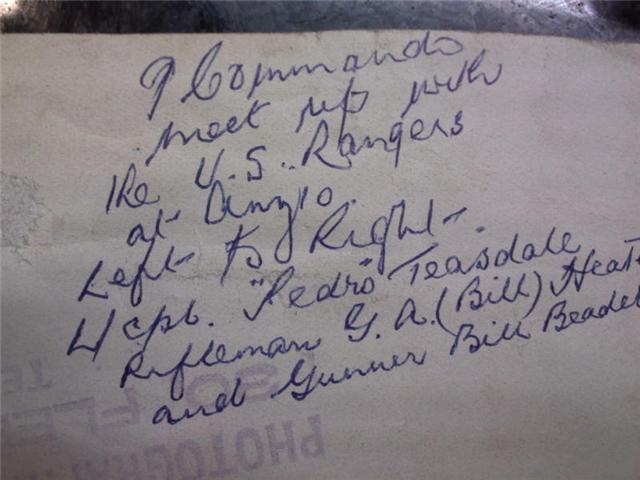 9 Commando
meet up with
the U.S. Rangers
at Anzio.
Left to Right.
L/cpl. "Pedro" Teasdale
Rifleman G. A. (Bill) Heat
and Gunner Bill Beadel
PHOTOGRA